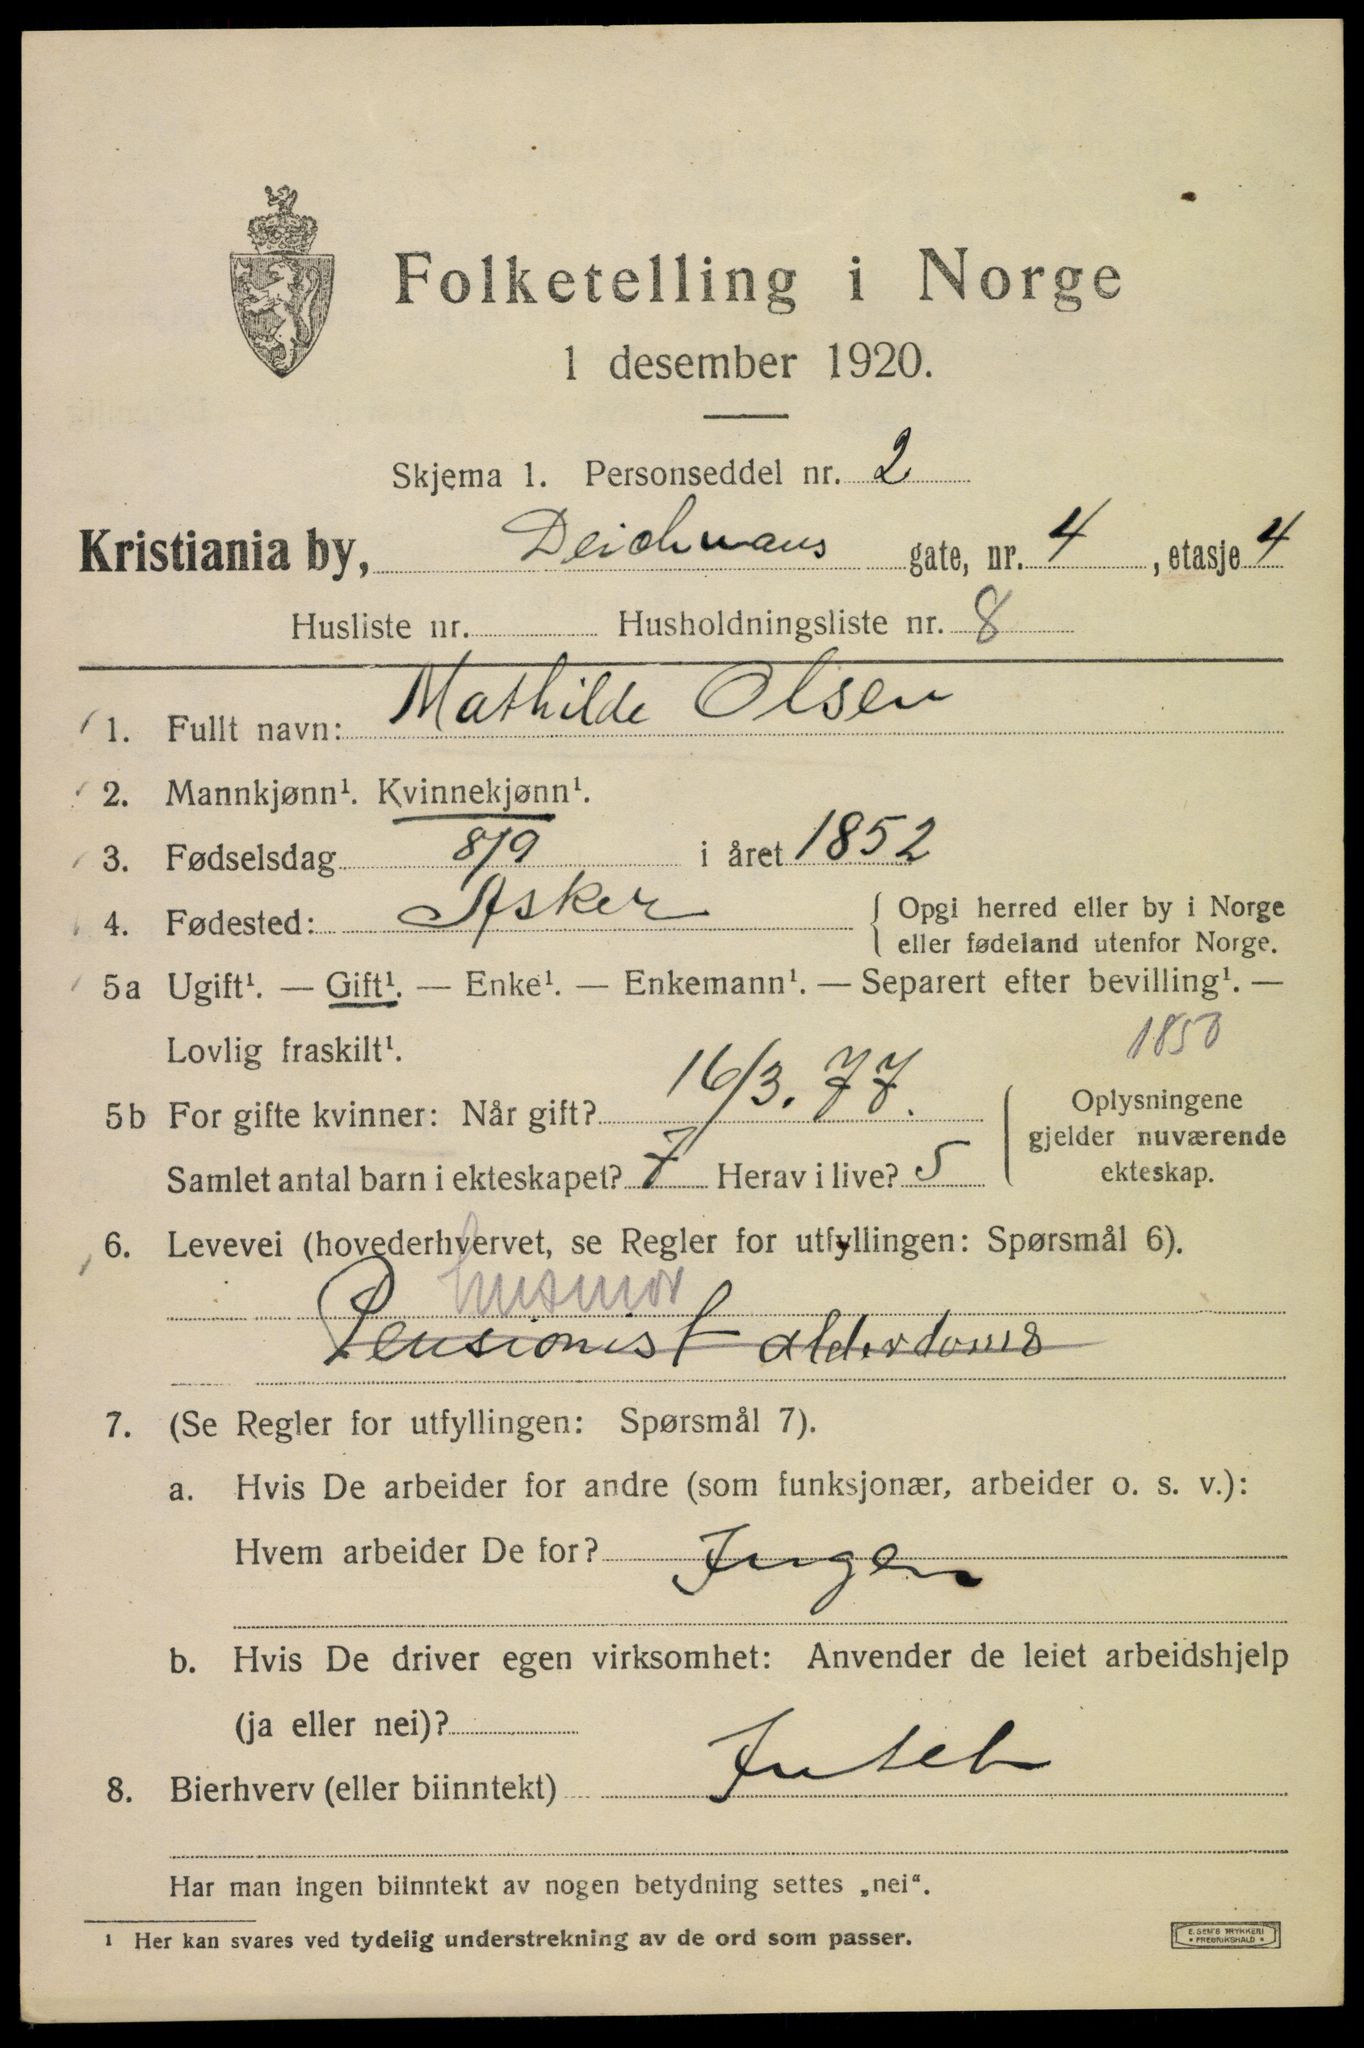 Folketelling i Norge
1 desember 1920.
Skjema 1. Personseddel nr. 2
Kristiania by, Deichmans gate, nr. 4, etasje 4
Husliste nr. Husholdningsliste nr. 8
1. Fullt navn: Mathilde Olsen
2. Mannkjønn¹. Kvinnekjønn¹.
3. Fødselsdag 8/9 i året 1852
4. Fødested: Asker { Opgi herred eller by i Norge
eller fødeland utenfor Norge.
5a Ugift¹. — Gift¹. — Enke¹. — Enkemann¹. — Separert efter bevilling¹. —
Lovlig fraskilt¹. 1850
5b For gifte kvinner: Når gift? 16/3. 77.
Samlet antal barn i ekteskapet? 7 Herav i live? 5
Oplysningene
gjelder nuværende
ekteskap.
6. Levevei (hovederhvervet, se Regler for utfyllingen: Spørsmål 6).
husmor
Pensionist alderdoms
7. (Se Regler for utfyllingen: Spørsmål 7).
a. Hvis De arbeider for andre (som funksjonær, arbeider o. s. v.):
Hvem arbeider De for? Ingen
b. Hvis De driver egen virksomhet: Anvender de leiet arbeidshjelp
(ja eller nei)?
8. Bierhverv (eller biinntekt) Intet
Har man ingen biinntekt av nogen betydning settes „nei“.
¹ Her kan svares ved tydelig understrekning av de ord som passer.
E. SEM'S TRYKKERI
• FREDRIKSHALD •